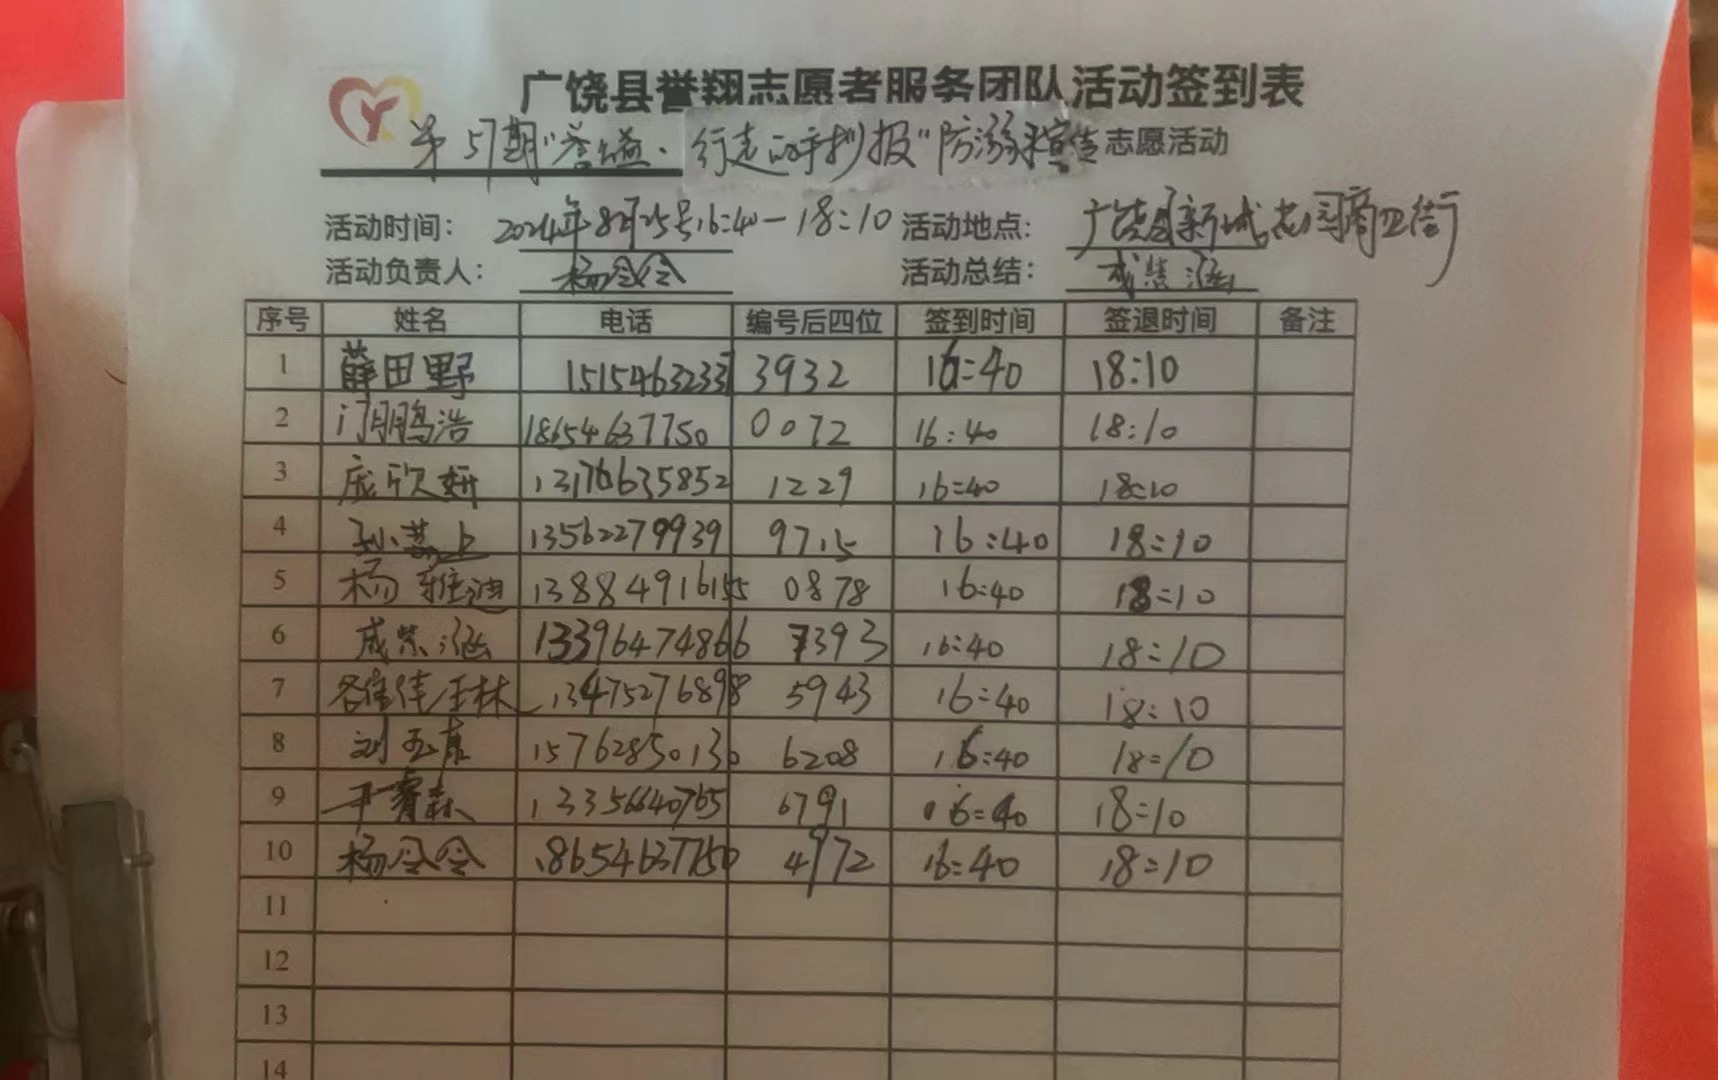 广饶县誉翔志愿者服务团队活动签到表
第51期"誉益·行走的手抄报"防溺水宣传志愿活动
活动时间: 2024年8月25号16:40—18:10 活动地点: 广饶县新城花园商业街
活动负责人: 杨令令 活动总结: 成紫涵
序号 姓名 电话 编号后四位 签到时间 签退时间 备注
1 薛田野 15154632337 3932 16:40 18:10
2 门鹏浩 18654637750 0072 16:40 18:10
3 庞欣妍 13176635852 1229 16:40 18:10
4 孙 13562279939 9715 16:40 18:10
5 杨雅迪 13884916155 0878 16:40 18:10
6 成紫涵 13396474866 7393 16:40 18:10
7 13475276898 5943 16:40 18:10
8 刘玉 15762850130 6208 16:40 18:10
9 13356640765 6791 16:40 18:10
10 杨令令 18654637750 4972 16:40 18:10
11
12
13
14